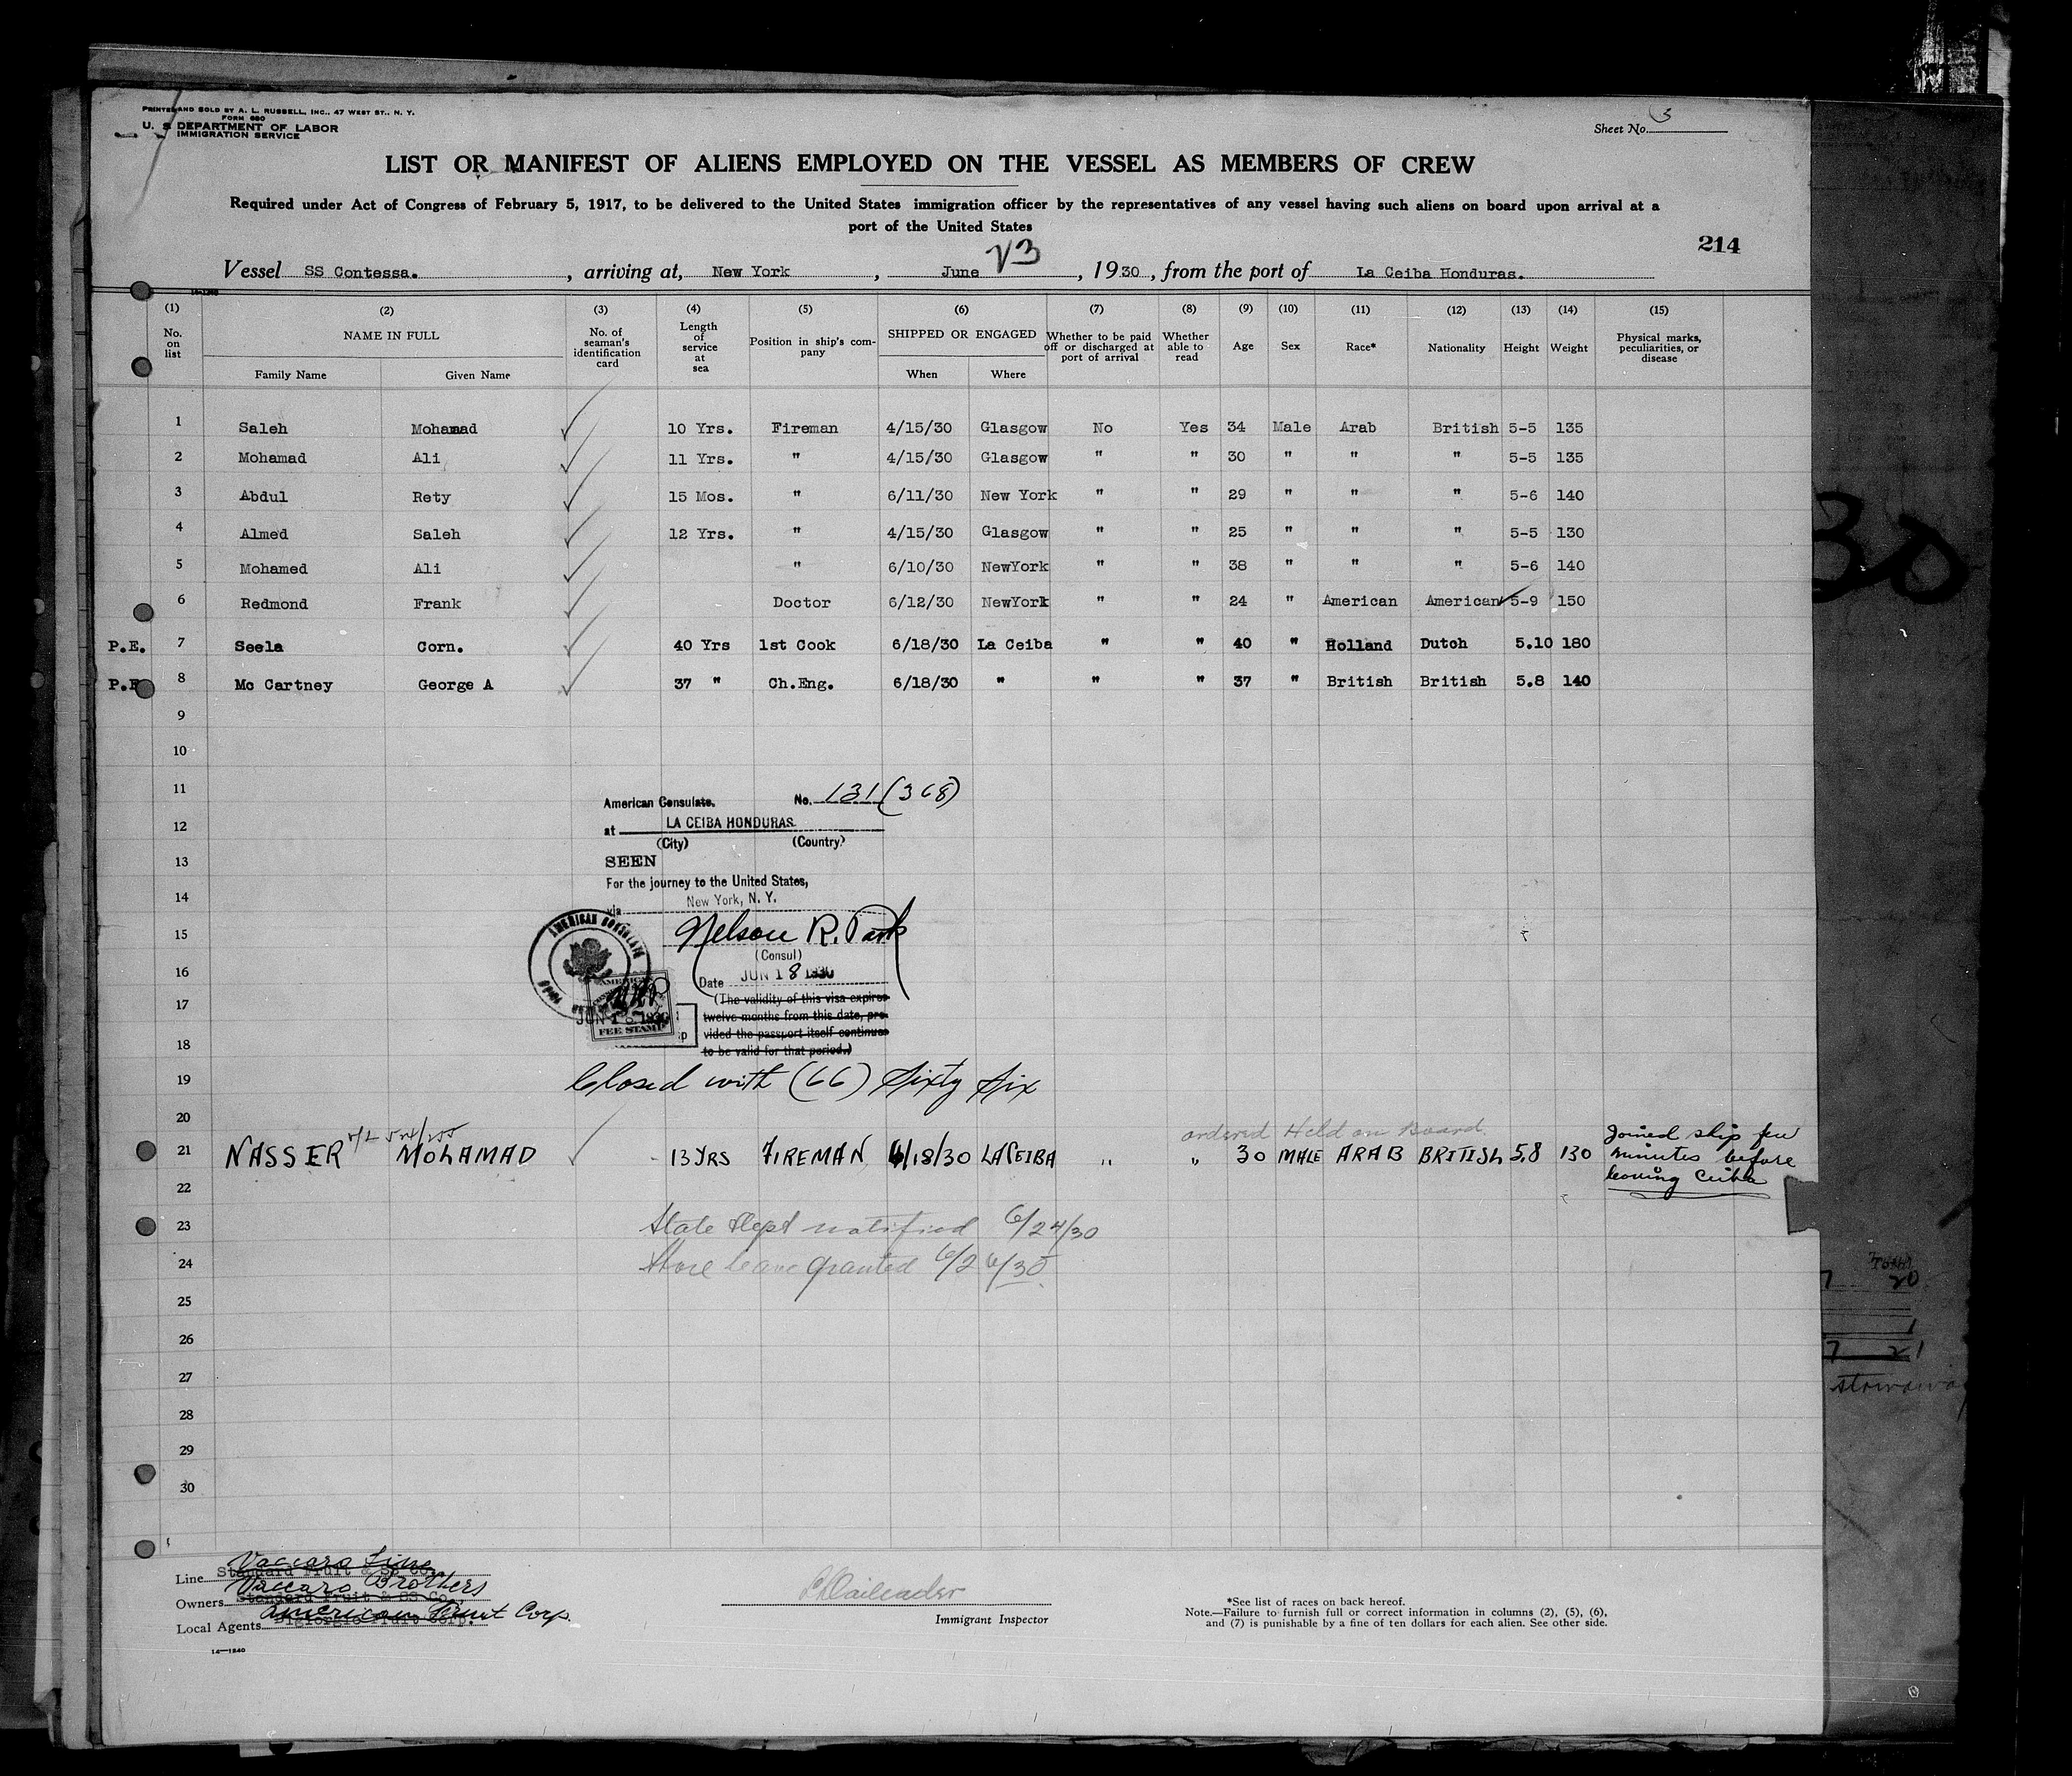 PRINTED AND SOLD BY A. L. RUSSELL, INC., 47 WEST ST., N. Y.
FORM 680
U. S. DEPARTMENT OF LABOR
IMMIGRATION SERVICE
Sheet No. 3
LIST OR MANIFEST OF ALIENS EMPLOYED ON THE VESSEL AS MEMBERS OF CREW
Required under Act of Congress of February 5, 1917, to be delivered to the United States immigration officer by the representatives of any vessel having such aliens on board upon arrival at a
port of the United States
214
Vessel SS Contessa. , arriving at, New York , June 23 , 1930 , from the port of La Ceiba Honduras.
(1) (2) (3) (4) (5) (6) (7) (8) (9) (10) (11) (12) (13) (14) (15)
No. on list
NAME IN FULL
Family Name Given Name
No. of seaman's identification card
Length of service at sea
Position in ship's company
SHIPPED OR ENGAGED
When Where
Whether to be paid off or discharged at port of arrival
Whether able to read
Age Sex Race* Nationality Height Weight
Physical marks, peculiarities, or disease
1 Saleh Mohamad 10 Yrs. Fireman 4/15/30 Glasgow No Yes 34 Male Arab British 5-5 135
2 Mohamad Ali 11 Yrs. " 4/15/30 Glasgow " " 30 " " " 5-5 135
3 Abdul Rety 15 Mos. " 6/11/30 New York " " 29 " " " 5-6 140
4 Almed Saleh 12 Yrs. " 4/15/30 Glasgow " " 25 " " " 5-5 130
5 Mohamed Ali " 6/10/30 NewYork " " 38 " " " 5-6 140
6 Redmond Frank Doctor 6/12/30 NewYork " " 24 " American American 5-9 150
P.E. 7 Seela Corn. 40 Yrs 1st Cook 6/18/30 La Ceiba " " 40 " Holland Dutch 5.10 180
P.E. 8 Mc Cartney George A 37 " Ch.Eng. 6/18/30 " " " 37 " British British 5.8 140
9
10
11
American Consulate. No. 131 (368)
12
at LA CEIBA HONDURAS
(City) (Country)
13
SEEN
For the journey to the United States,
14
via New York, N. Y.
15
Nelson R. Park
(Consul)
16
Date JUN 18 1930
AMERICAN CONSULATE
17
(The validity of this visa expires
twelve months from this date, pro-
vided the passport itself continues
to be valid for that period.)
JUN 18 1930
FEE STAMP
18
19
Closed with (66) Sixty Six
20
ordered Held on Board
21 NASSER MOHAMAD 13 YRS FIREMAN 6/18/30 LA CEIBA " " 30 MALE ARAB BRITISH 5.8 130
Joined ship few
minutes before
leaving Ceiba
22
23
State Dept notified 6/24/30
24
Shore leave granted 6/26/30
25
26
27
28
29
30
Vaccaro Line
Line Standard Fruit & SS Co.
Vaccaro Brothers
Owners Standard Fruit & SS Co.
American Fruit Corp.
Local Agents Digiorgio Fruit Corp.
14—1240
Immigrant Inspector
*See list of races on back hereof.
Note.—Failure to furnish full or correct information in columns (2), (5), (6),
and (7) is punishable by a fine of ten dollars for each alien. See other side.
30
20
21